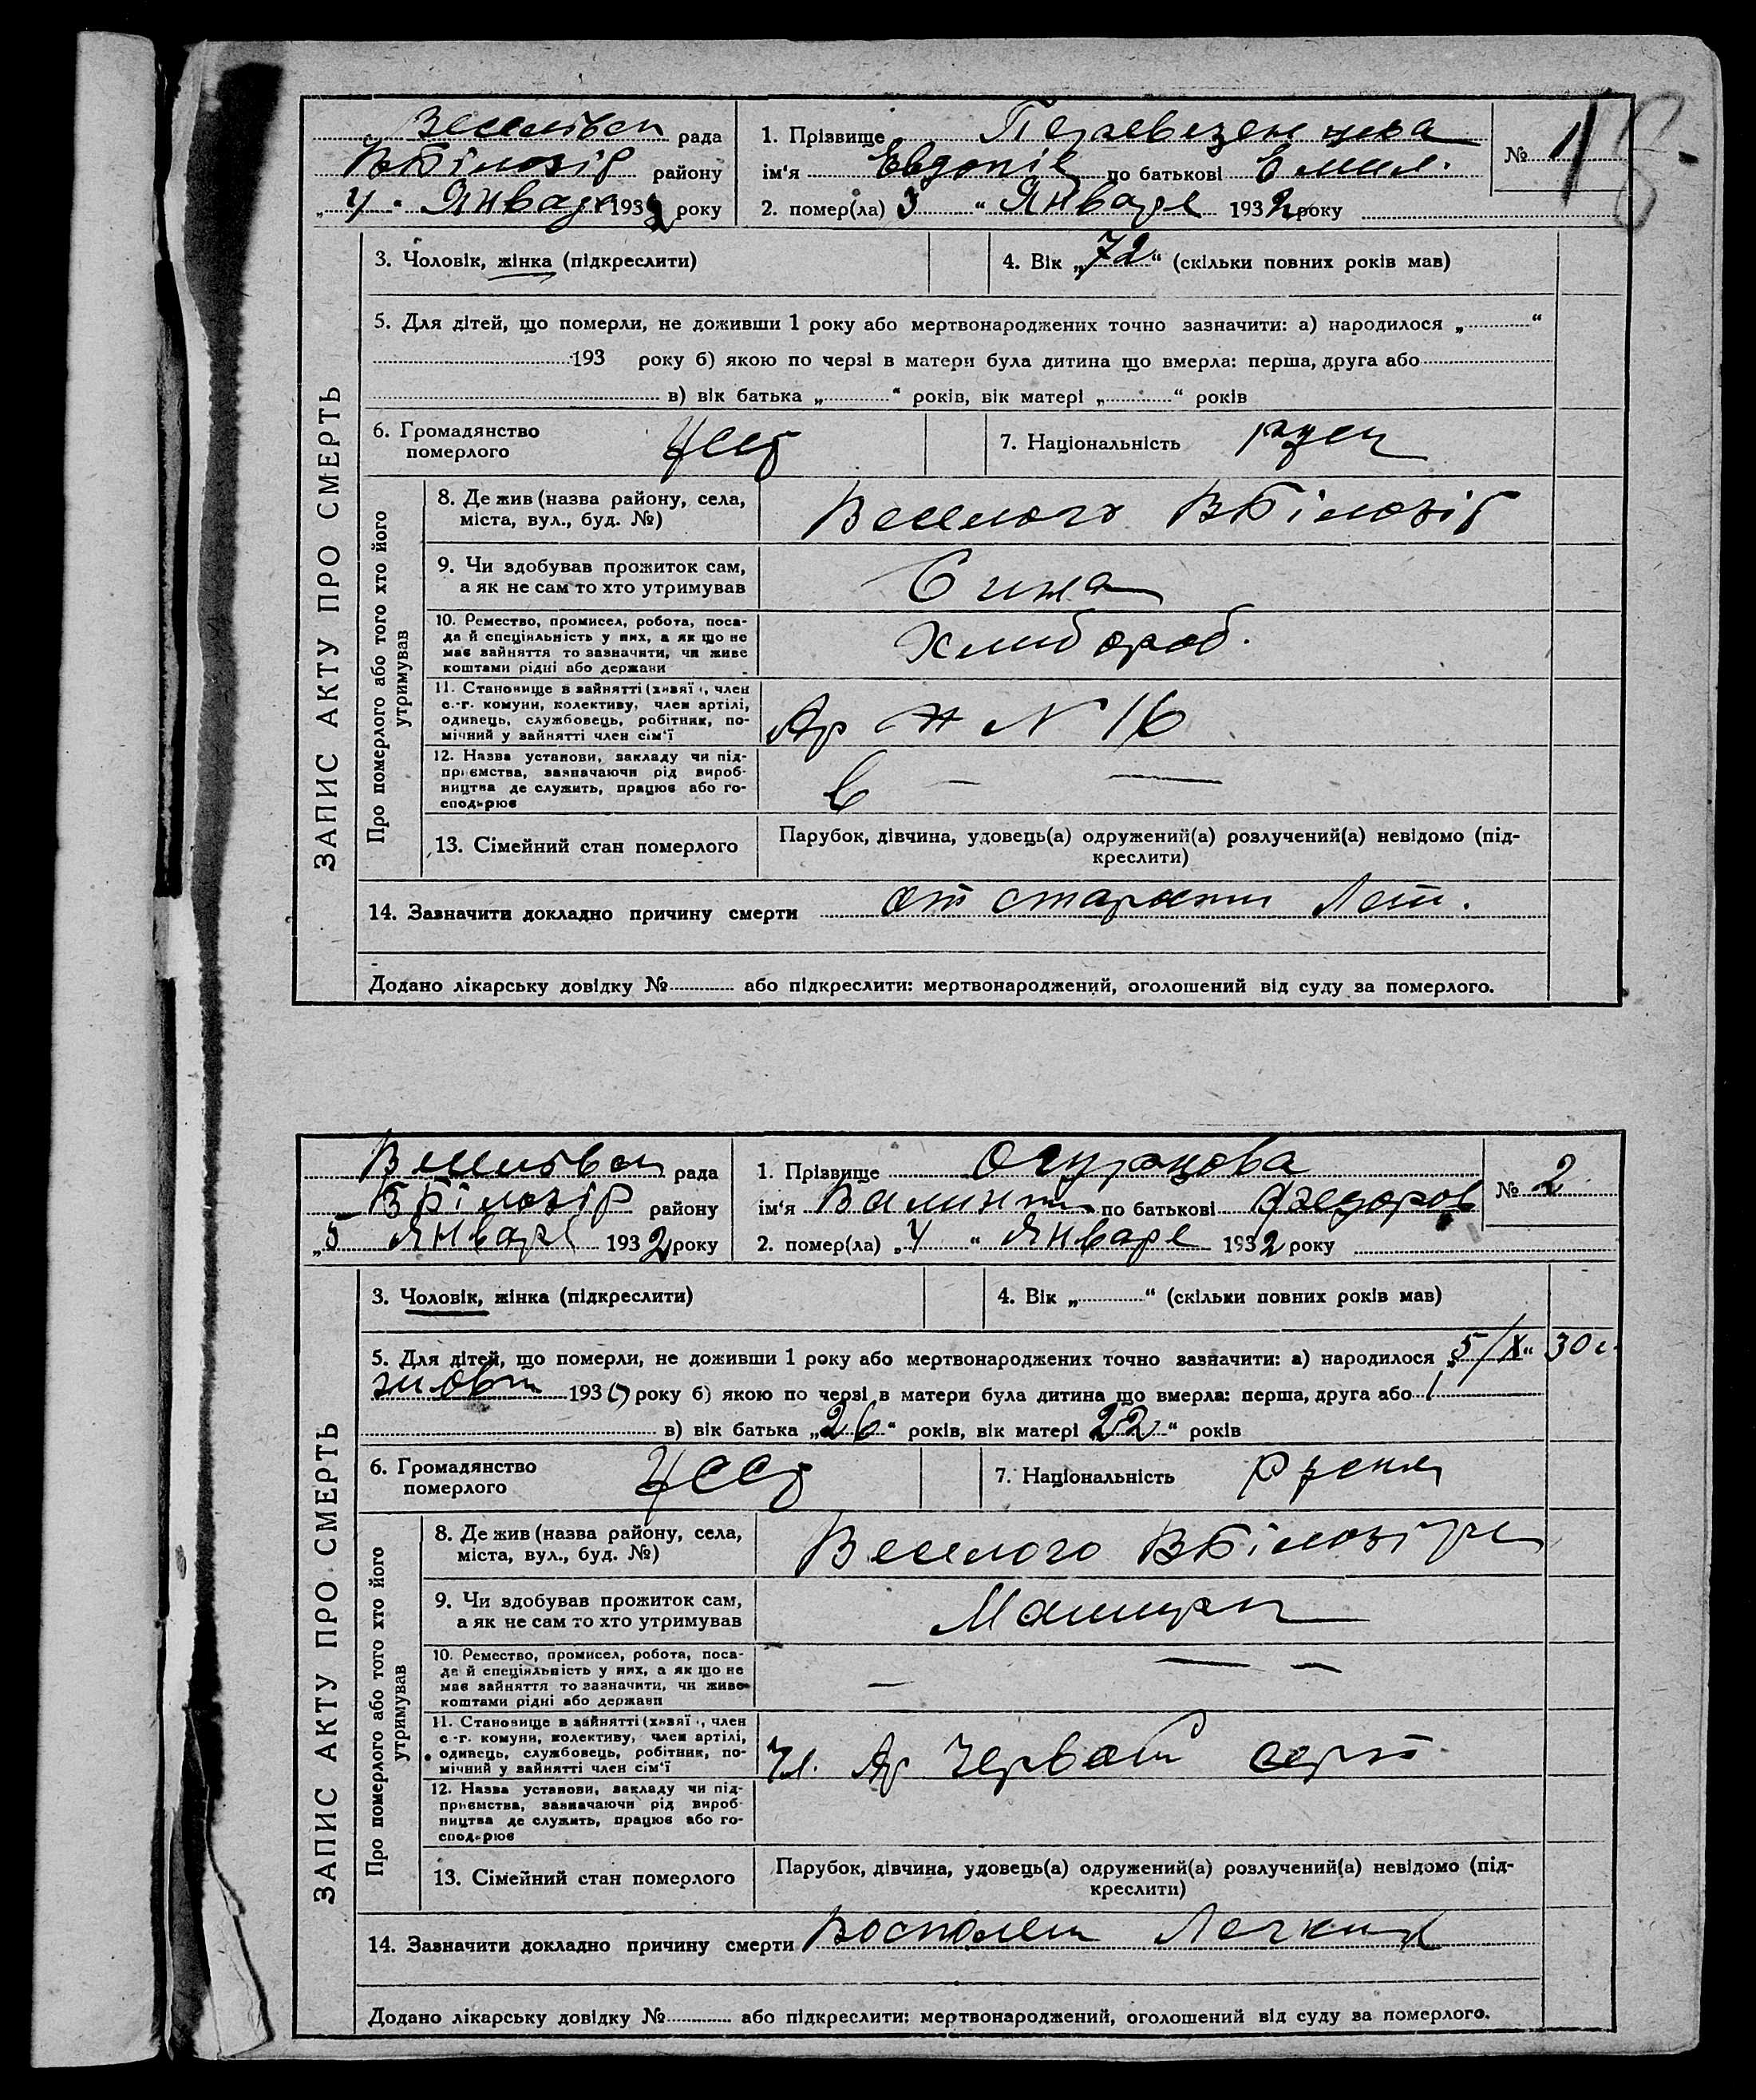 рада
ВБілозір району
„4“ Января 1932 року
1. Прізвище Перевезенцева
ім'я Евдокія по батькові Емил.
2. помер(ла) 3 “ Января 1932 року
№ 1
18
ЗАПИС АКТУ ПРО СМЕРТЬ
3. Чоловік, жінка (підкреслити)
4. Вік „72“ (скільки повних років мав)
5. Для дітей, що померли, не доживши 1 року або мертвонароджених точно зазначити: а) народилося „ “
193 року б) якою по черзі в матери була дитина що вмерла: перша, друга або
в) вік батька „ “ років, вік матері „ “ років
6. Громадянство
померлого
УССР
7. Національність
Про померлого або того хто його
утримував
8. Де жив (назва району, села,
міста, вул., буд. №)
Веселого ВБілозір
9. Чи здобував прожиток сам,
а як не сам то хто утримував
Сина
10. Ремество, промисел, робота, поса-
да й спеціяльність у них, а як що не
має зайняття то зазначити, чи живе
коштами рідні або держави
Хлибороб.
11. Становище в зайнятті (хазяї , член
с.-г. комуни, колективу, член артілі,
одинець, службовець, робітник, по-
мічний у зайнятті член сім'ї
Ар № 16
12. Назва установи, закладу чи під-
приємства, зазначаючи рід вироб-
ництва де служить, працює або го-
сподарює
13. Сімейний стан померлого
Парубок, дівчина, удовець(а) одружений(а) розлучений(а) невідомо (під-
креслити)
14. Зазначити докладно причину смерти от старости Лет.
Додано лікарську довідку № або підкреслити: мертвонароджений, оголошений від суду за померлого.
рада
ВБілозір району
„5 Января 1932 року
1. Прізвище Огурцова
ім'я Валинтин по батькові Федоров
2. помер(ла) „4 “ Января 1932 року
№ 2
ЗАПИС АКТУ ПРО СМЕРТЬ
3. Чоловік, жінка (підкреслити)
4. Вік „ “ (скільки повних років мав)
5. Для дітей, що померли, не доживши 1 року або мертвонароджених точно зазначити: а) народилося „5/X“ 30 г.
жовт 1930 року б) якою по черзі в матери була дитина що вмерла: перша, друга або 1
в) вік батька „26“ років, вік матері „22“ років
6. Громадянство
померлого
УССР
7. Національність
Про померлого або того хто його
утримував
8. Де жив (назва району, села,
міста, вул., буд. №)
Веселого ВБілозірк
9. Чи здобував прожиток сам,
а як не сам то хто утримував
10. Ремество, промисел, робота, поса-
да й спеціяльність у них, а як що не
має зайняття то зазначити, чи живе
коштами рідні або держави
11. Становище в зайнятті (хазяї , член
с.-г. комуни, колективу, член артілі,
одинець, службовець, робітник, по-
мічний у зайнятті член сім'ї
Чл. Ар Червон серп
12. Назва установи, закладу чи під-
приємства, зазначаючи рід вироб-
ництва де служить, працює або го-
сподарює
13. Сімейний стан померлого
Парубок, дівчина, удовець(а) одружений(а) розлучений(а) невідомо (під-
креслити)
14. Зазначити докладно причину смерти Воспален Легких
Додано лікарську довідку № або підкреслити: мертвонароджений, оголошений від суду за померлого.